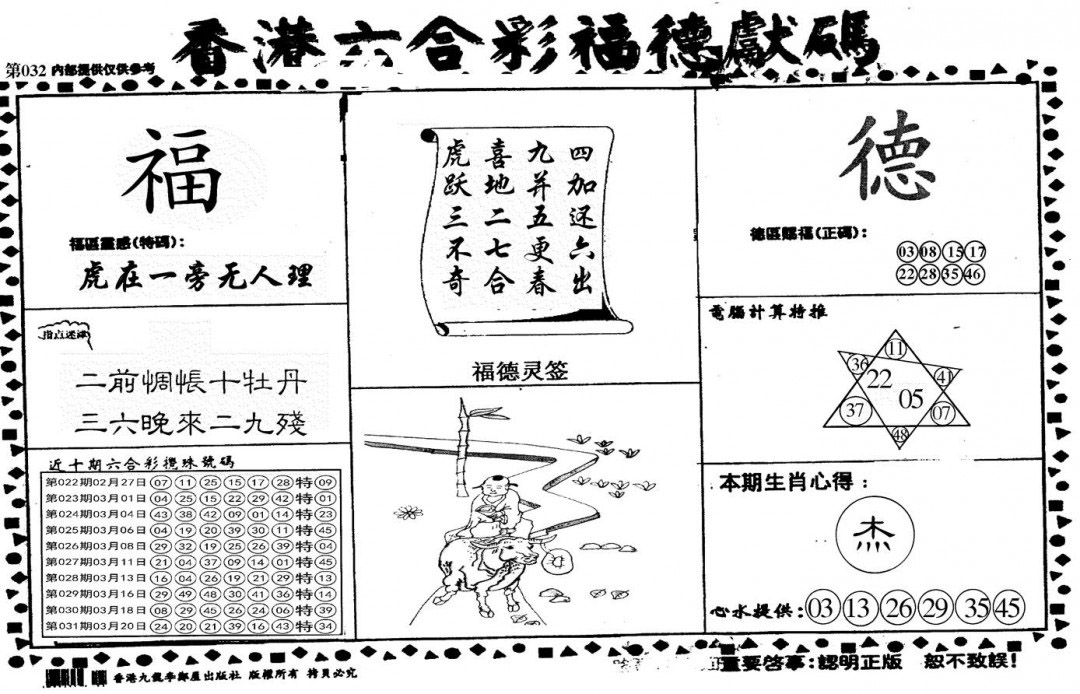 香港六合彩福德獻碼
第032 内部提供仅供参考
福
福區靈感(特碼):
虎在一旁无人理
指点迷津
二前惆悵十牡丹
三六晚來二九殘
近十期六合彩攪珠號碼
第022期02月27日 07 11 25 15 17 28 特 09
第023期03月01日 04 25 15 22 29 42 特 01
第024期03月04日 43 38 42 09 01 14 特 23
第025期03月06日 04 19 20 39 30 11 特 45
第026期03月08日 29 32 19 25 26 39 特 04
第027期03月11日 21 04 37 09 14 01 特 45
第028期03月13日 16 04 26 19 21 29 特 13
第029期03月16日 29 49 48 30 41 36 特 14
第030期03月18日 08 29 45 26 24 06 特 39
第031期03月20日 24 20 21 39 16 43 特 34
四加还六出
九并五更春
喜地二七合
虎跃三不奇
福德灵签
德
德區賜福(正碼):
03 08 15 17
22 28 35 46
電腦計算特推
11
36 22 41
05
37 07
48
本期生肖心得:
杰
心水提供:03 13 26 29 35 45
香港九龍李鄭屋出版社 版權所有 拷貝必究
重要啓事:認明正版 恕不致誤!